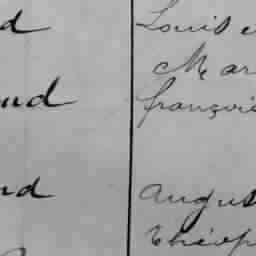 d Louis e
Mar
nd françois
nd august
théop